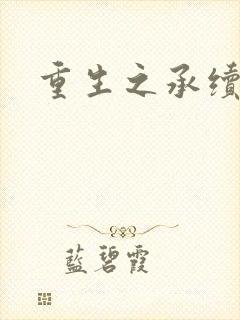 重生之承续
藍碧霞